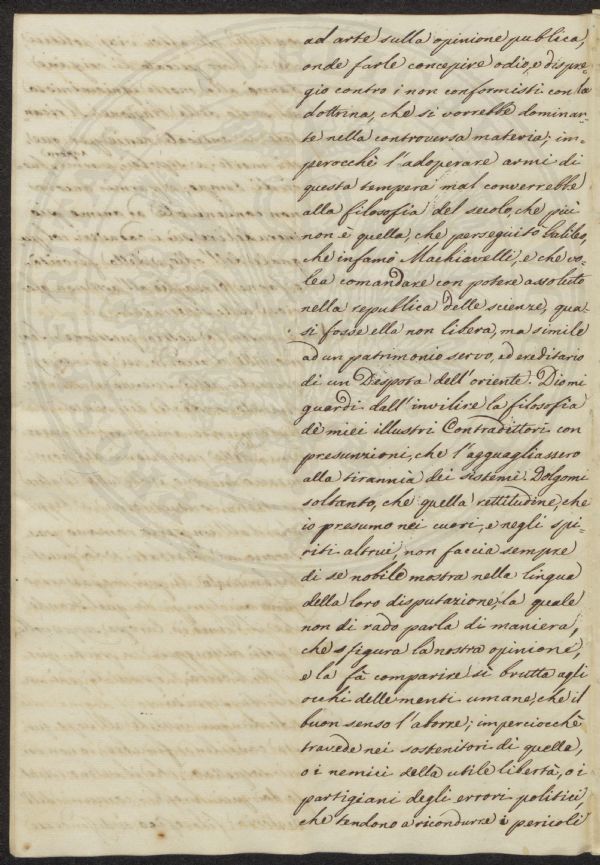 ad arte sulla opinione publica,
onde farle concepire odio, e dispre-
gio contro i non conformisti con la
dottrina, che si vorrebbe dominan-
te nella controversa materia; im-
perocchè l'adoperare armi di
questa tempera mal converrebbe
alla filosofia del secolo, che più
non è quella, che perseguitò Galileo,
che infamò Machiavelli, e che vo-
lea comandare con potere assoluto
nella republica delle scienze, qua-
si fosse ella non libera, ma simile
ad un patrimonio servo, ed ereditario
di un Despota dell'oriente. Dio mi
guardi dall'invilire la filosofia
de' miei illustri Contradittori con
presunzioni, che l'agguagliassero
alla tirannia dei sistemi. Dolgomi
soltanto, che quella rettitudine, che
io presumo nei cuori, e negli spi-
riti altrui, non faccia sempre
di se nobile mostra nella lingua
della loro disputazione, la quale
non di rado parla di maniera,
che sfigura la nostra opinione,
e la fà comparire sì brutta agli
occhi delle menti umane, che il
buon senso l'aborre; imperciocchè
travede nei sostenitori di quella,
o i nemici della utile libertà, o i
partigiani degli errori politici,
che tendono a ricondurre i pericoli